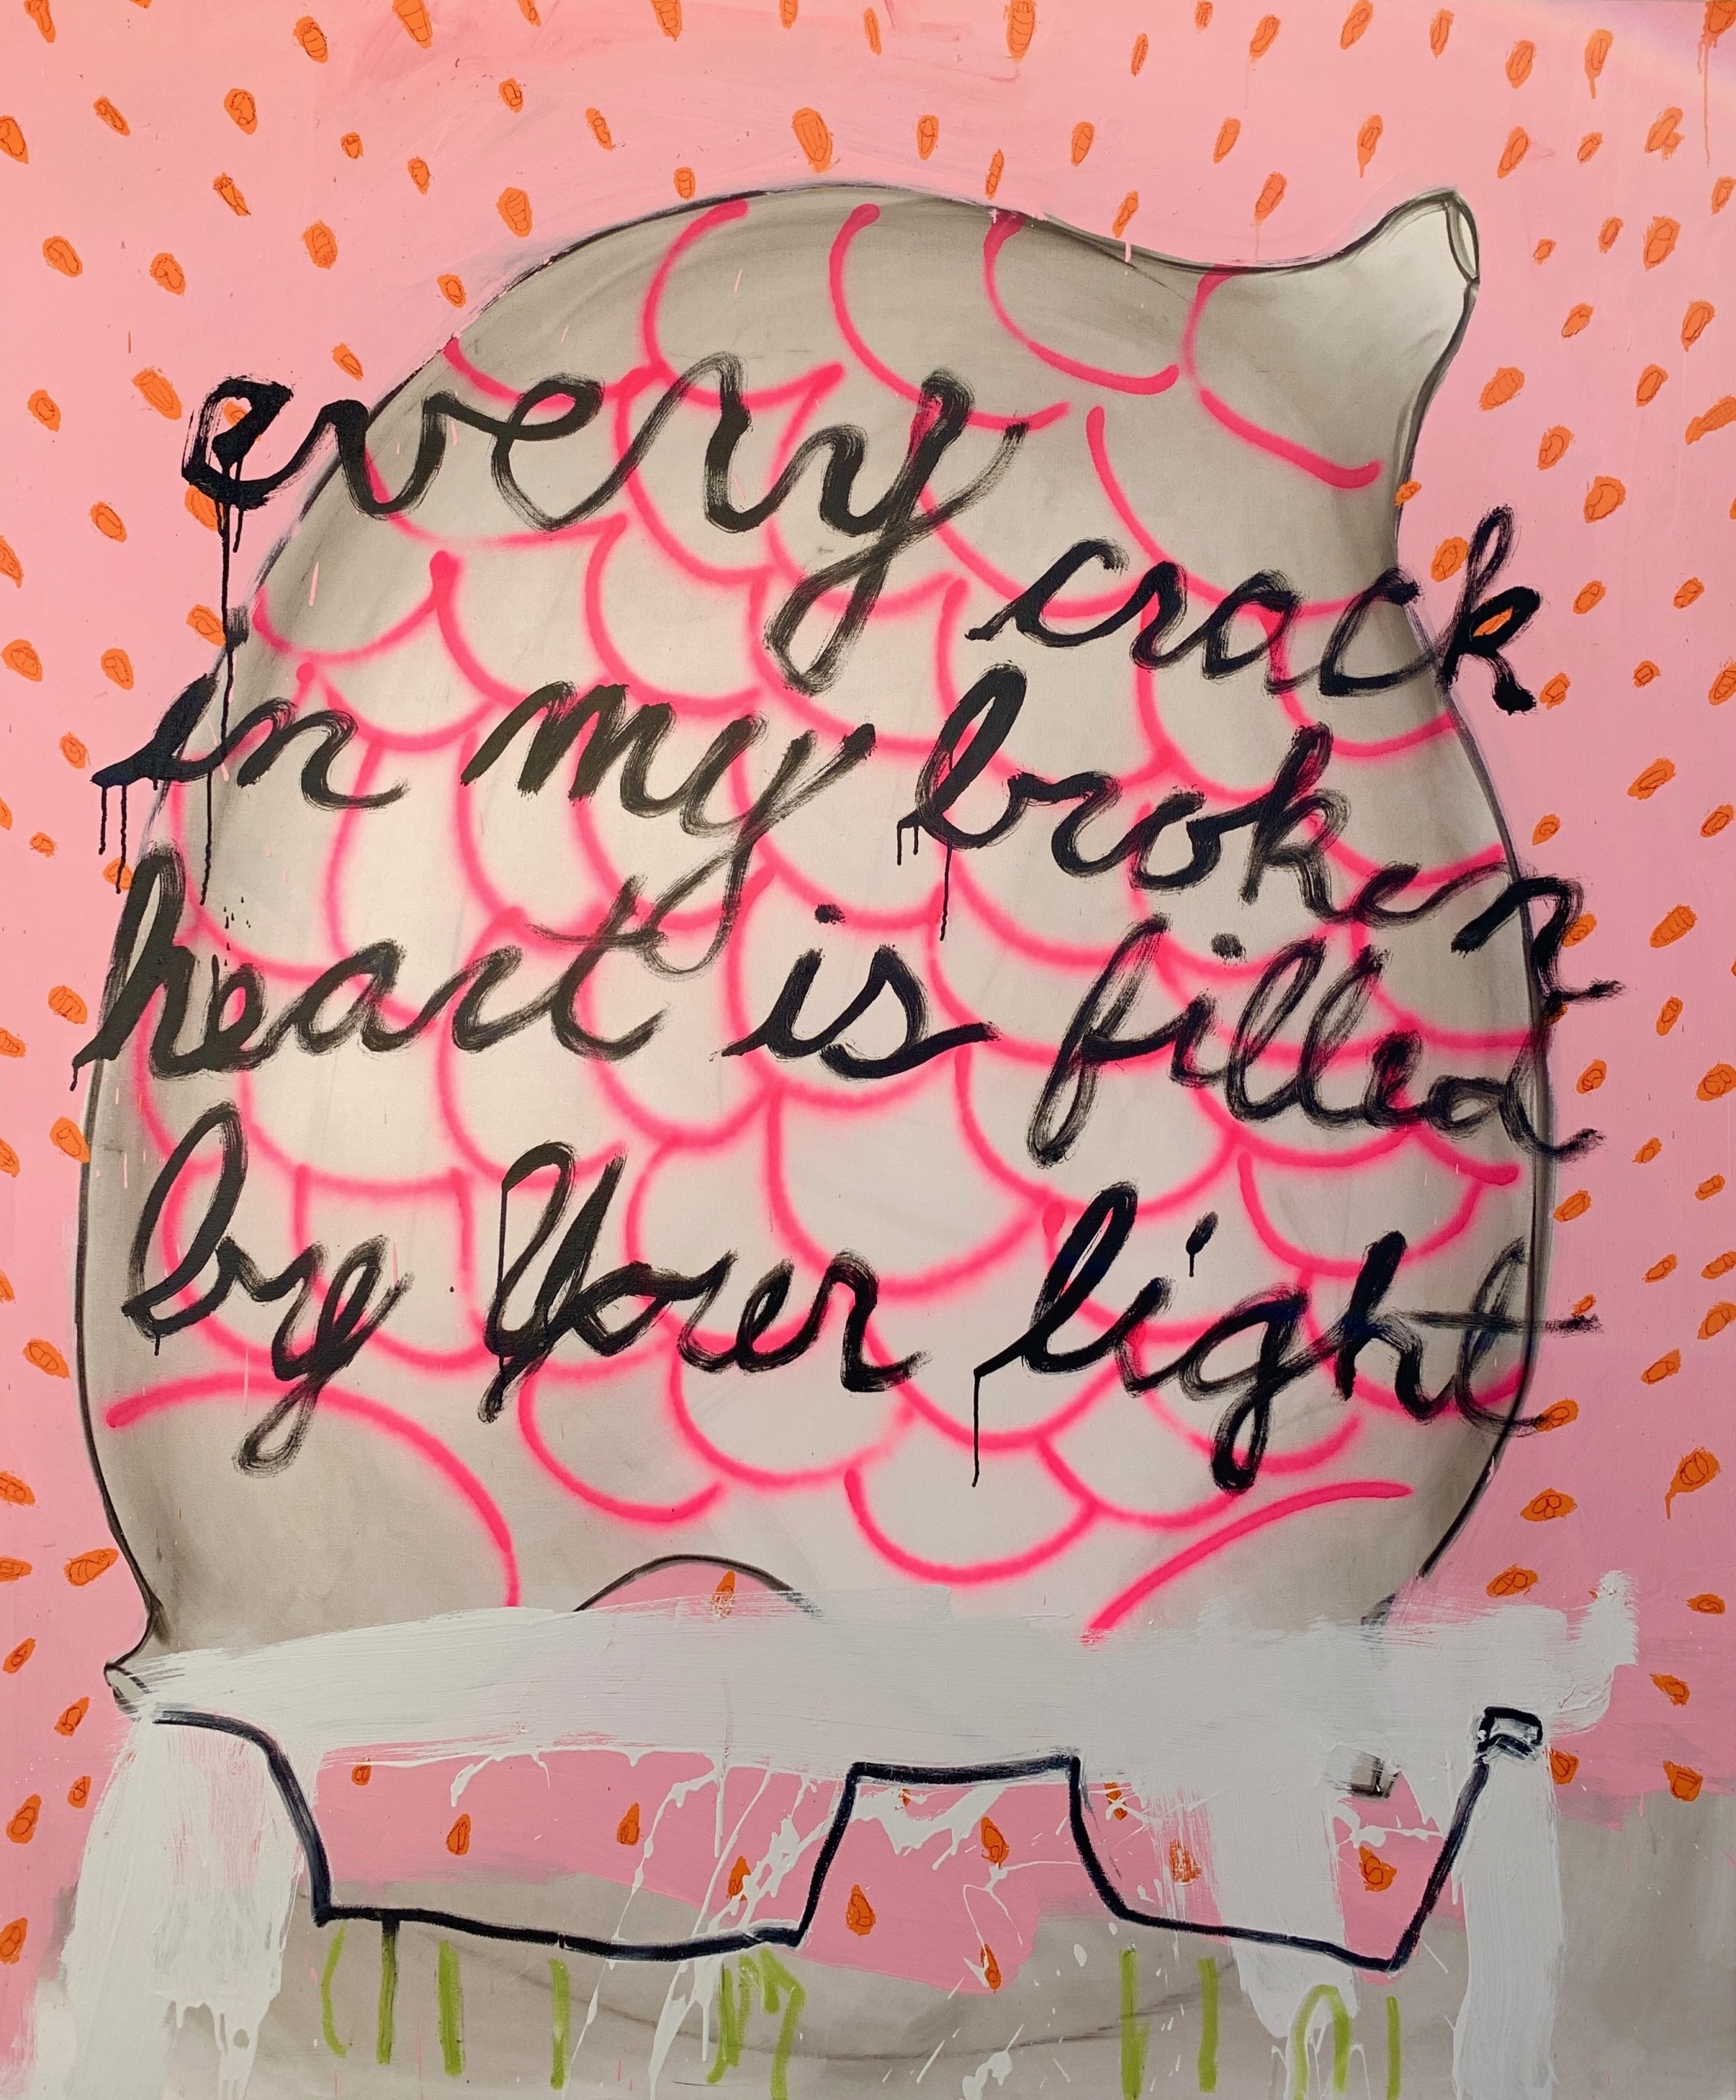 every crack
in my broken
heart is filled
by Your light